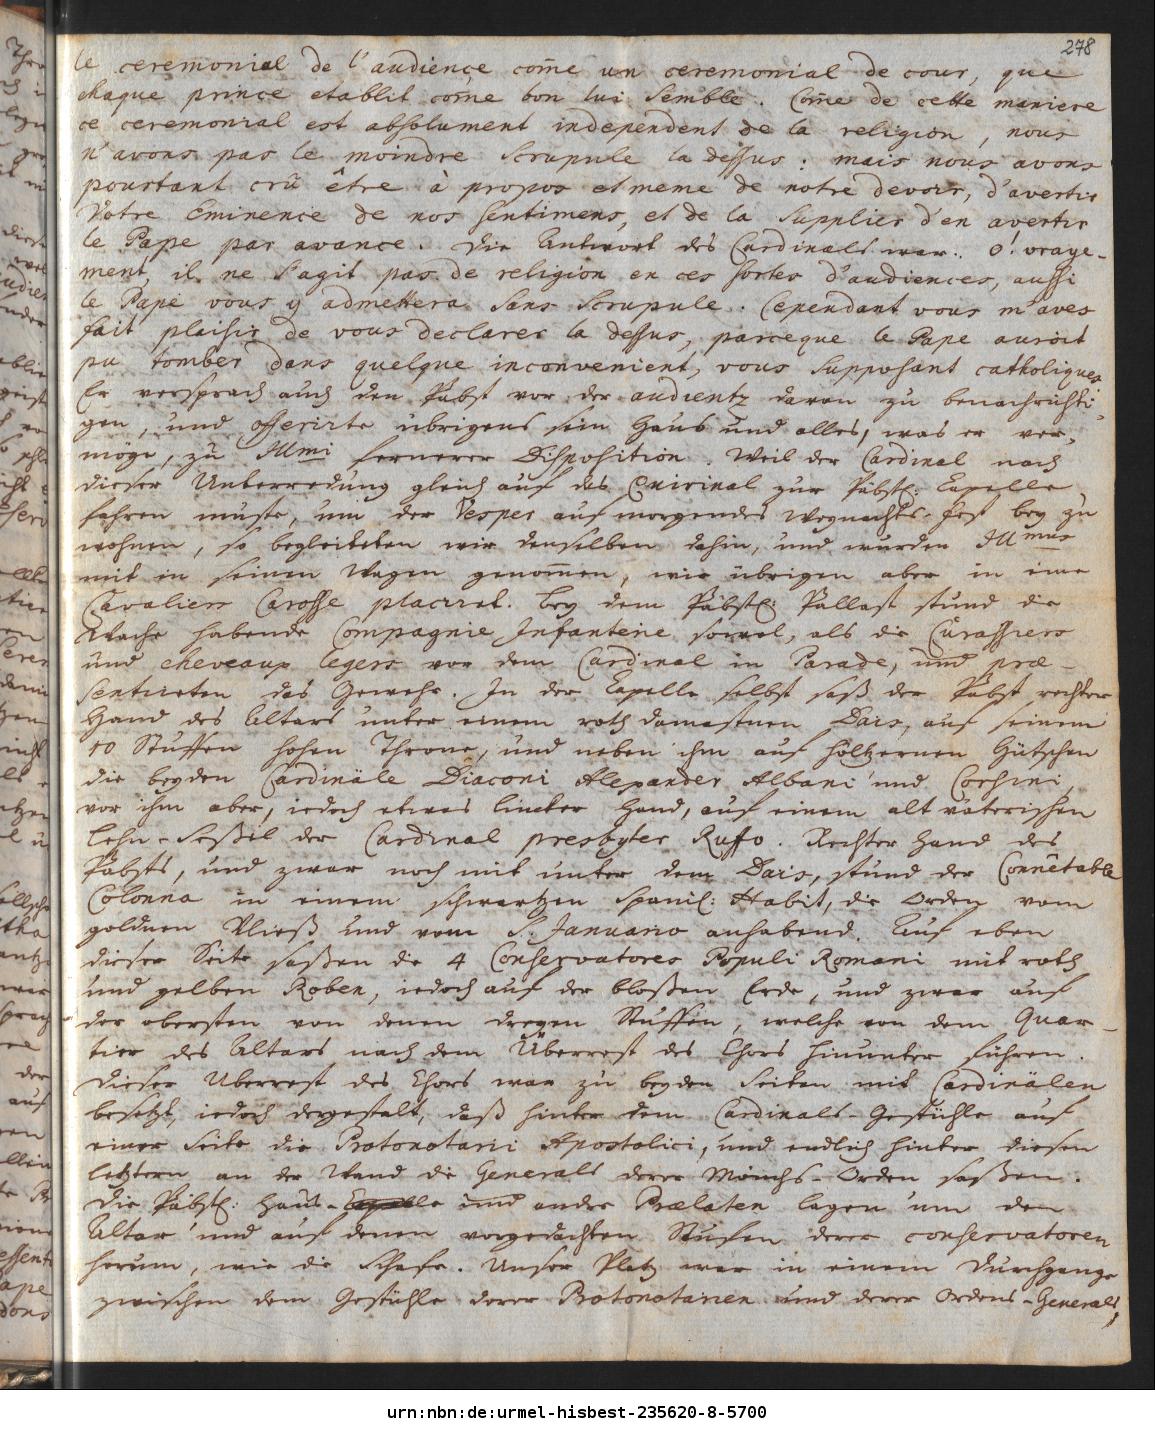 278
le ceremonial de l'audience com̄e un ceremonial de cour, que
chaque prince etablit com̄e bon lui semble. Com̄e de cette maniere
ce ceremonial est absolument independent de la religion, nous
n'avons pas le moindre scrupule la dessus: mais nous avons
pourtant crû être à propos et meme de notre devoir, d'avertir
Votre Eminence de nos sentimens, et de la supplier d'en avertir
le Pape par avance. Die Antwort des Cardinals war: O! vraye-
ment, il ne s'agit pas de religion en ces sortes d'audiences, aussi
le Pape vous y admettera sans scrupule. Cependant vous m'aves
fait plaisir de vous declarer la dessus, parceque le Pape auroit
pu tomber dans quelque inconvenient, vous supposant catholiques.
Er versprach auch den Pabst vor der audientz davon zu benachrichti-
gen, und offerirte übrigens sein Hauß und alles, was er ver-
möge, zu Illmi fernerer Disposition. Weil der Cardinal nach
dieser Unterredung gleich auf das Quirinal zur Päbstl: Capelle
fahren muste, um der Vesper auf morgendes Weynachts-Fest bey zu
wohnen, so begleiteten wir denselben dahin, und wurden Illmus
mit in seinen Wagen genom̄en, wir übrigen aber in eine
Cavaliers Carosse placiret. Bey dem Päbstl: Pallast stund die
Wache habende Compagnie Infanterie sowol, als die Cürassiers
und cheveaux legers vor dem Cardinal in Parade, und præ-
sentirten das Gewehr. In der Capelle selbst saß der Pabst rechter
Hand des Altars unter einem roth damastnen Dais, auf seinem
10 Stuffen hohen Throne, und neben ihm auf höltzernen Hütschen
die beyden Cardinäle Diaconi Alexander Albani und Corsini,
vor ihm aber, iedoch etwas lincker Hand, auf einem alt väterischen
Lehn-Seßel der Cardinal presbyter Ruffo. Rechter Hand des
Pabsts, und zwar noch mit unter dem Dais, stund der Connêtable
Colonna in einem schwartzen Spanis: Habit, die Orden vom
goldnen Vließ und vom S. Januario anhabend. Auf eben
dieser Seite saßen die 4 Conservatores Populi Romani mit roth
und gelben Roben, iedoch auf der bloßen Erde, und zwar auf
der obersten von denen dreyen Stuffen, welche von dem Quar-
tier des Altars nach dem Überrest des Chors hinunter führen.
Dieser Uberrest des Chors war zu beyden Seiten mit Cardinälen
besetzt, iedoch dergestalt, daß hinter dem Cardinals-Gestühle auf
einer Seite die Protonotarii Apostolici, und endlich hinter diesen
letztern an der Wand die Generals derer Mönchs-Orden saßen.
Die Päbstl: Hauß- und andre Prælaten lagen um den
Altar und auf denen vorgedachten Stufen derer conservatoren
herum, wie die Schafe. Unser Platz war in einem Durchgange
zwischen dem Gestühle derer Protonotarien und derer Ordens-Generals,
urn:nbn:de:urmel-hisbest-235620-8-5700